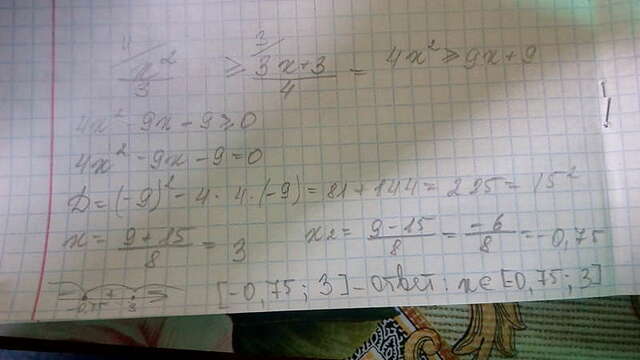 4/ x²/3 ≥ 3/ 3x+3/4 = 4x² ≥ 9x+9
4x² - 9x - 9 ≥ 0
4x² - 9x - 9 = 0
D = (-9)² - 4 · 4 · (-9) = 81 + 144 = 225 = 15²
x = 9+15/8 = 3 x₂ = 9-15/8 = -6/8 = -0,75
-0,75 + 3 [-0,75; 3] - Ответ: x ∈ [-0,75; 3]
!